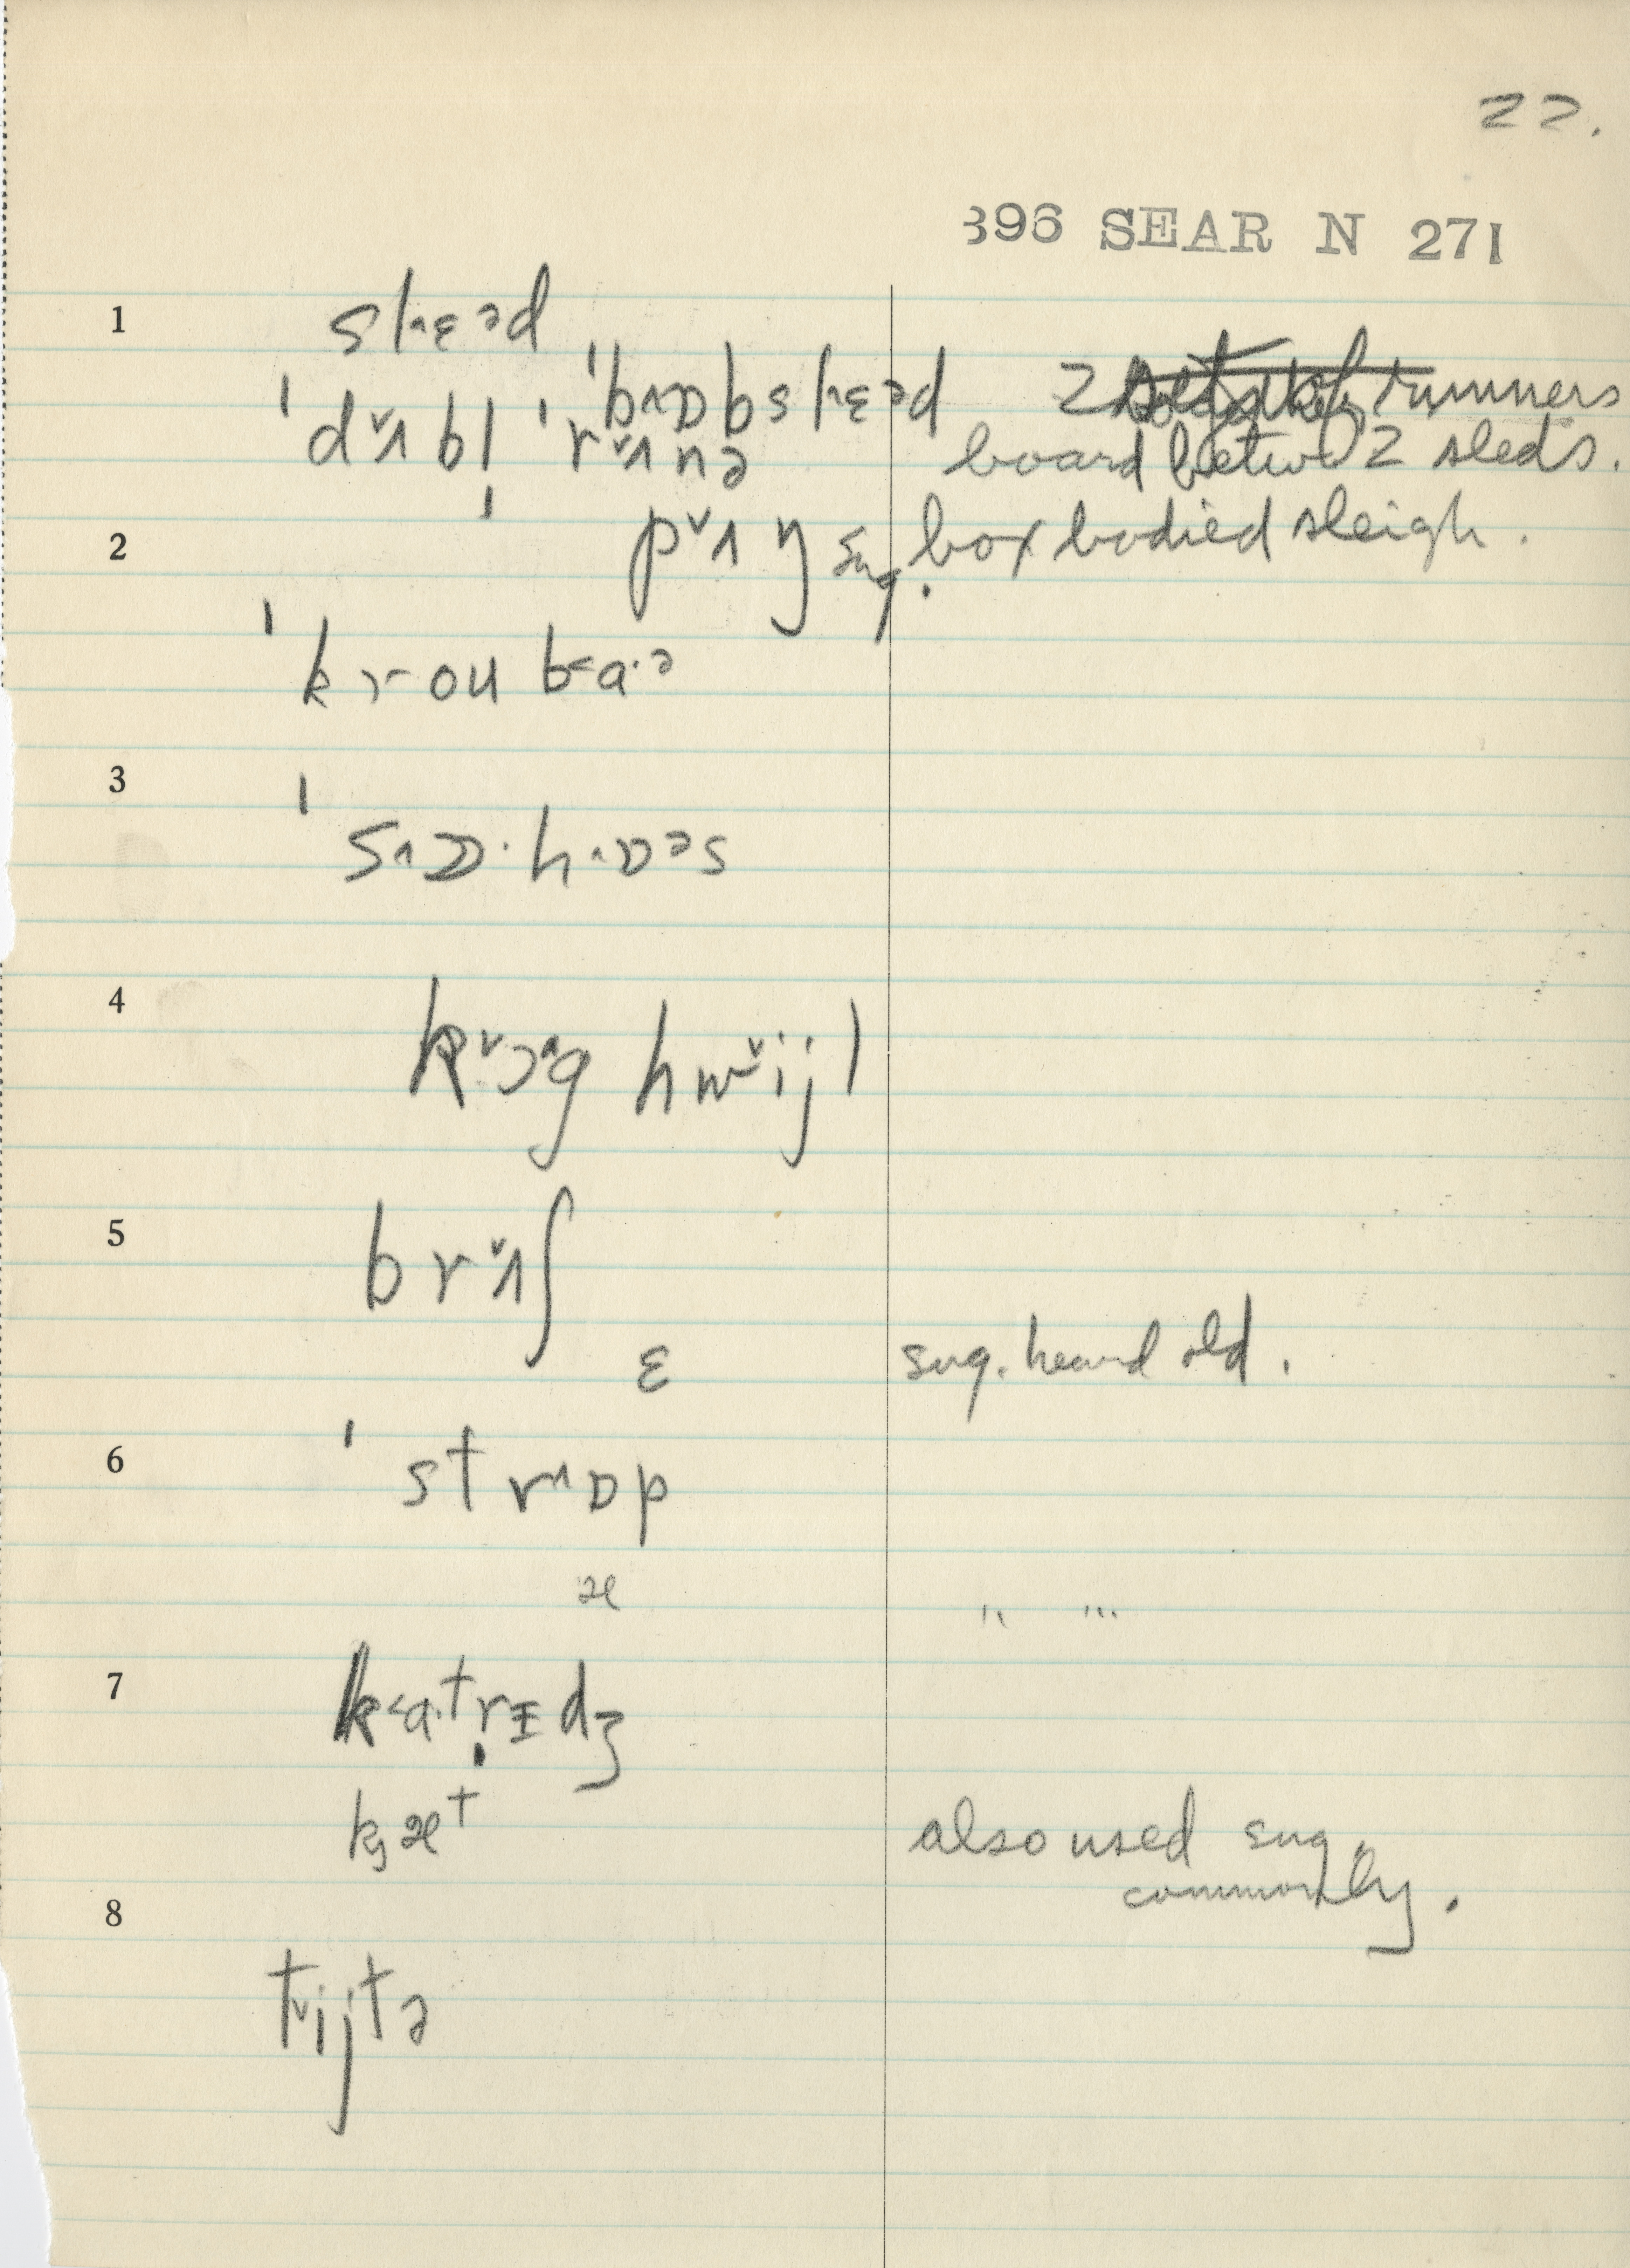 22.
396 SEAR N 271
1 slɛəd
ˈbɒbslɛəd 2 runners
ˈdʌbl̩ ˈrʌnə board betw 2 sleds.
2 pʌŋ sug. box bodied sleigh.
ˈkroʊba·ə
3
ˈsɒ·hɒəs
4
kɔg hwijl
5 brʌʃ
ɛ sug. heard old.
6 ˈstrɒp
æ " "
7 ka·trɪdʒ
kæt also used sug.
commonly.
8
tijtə